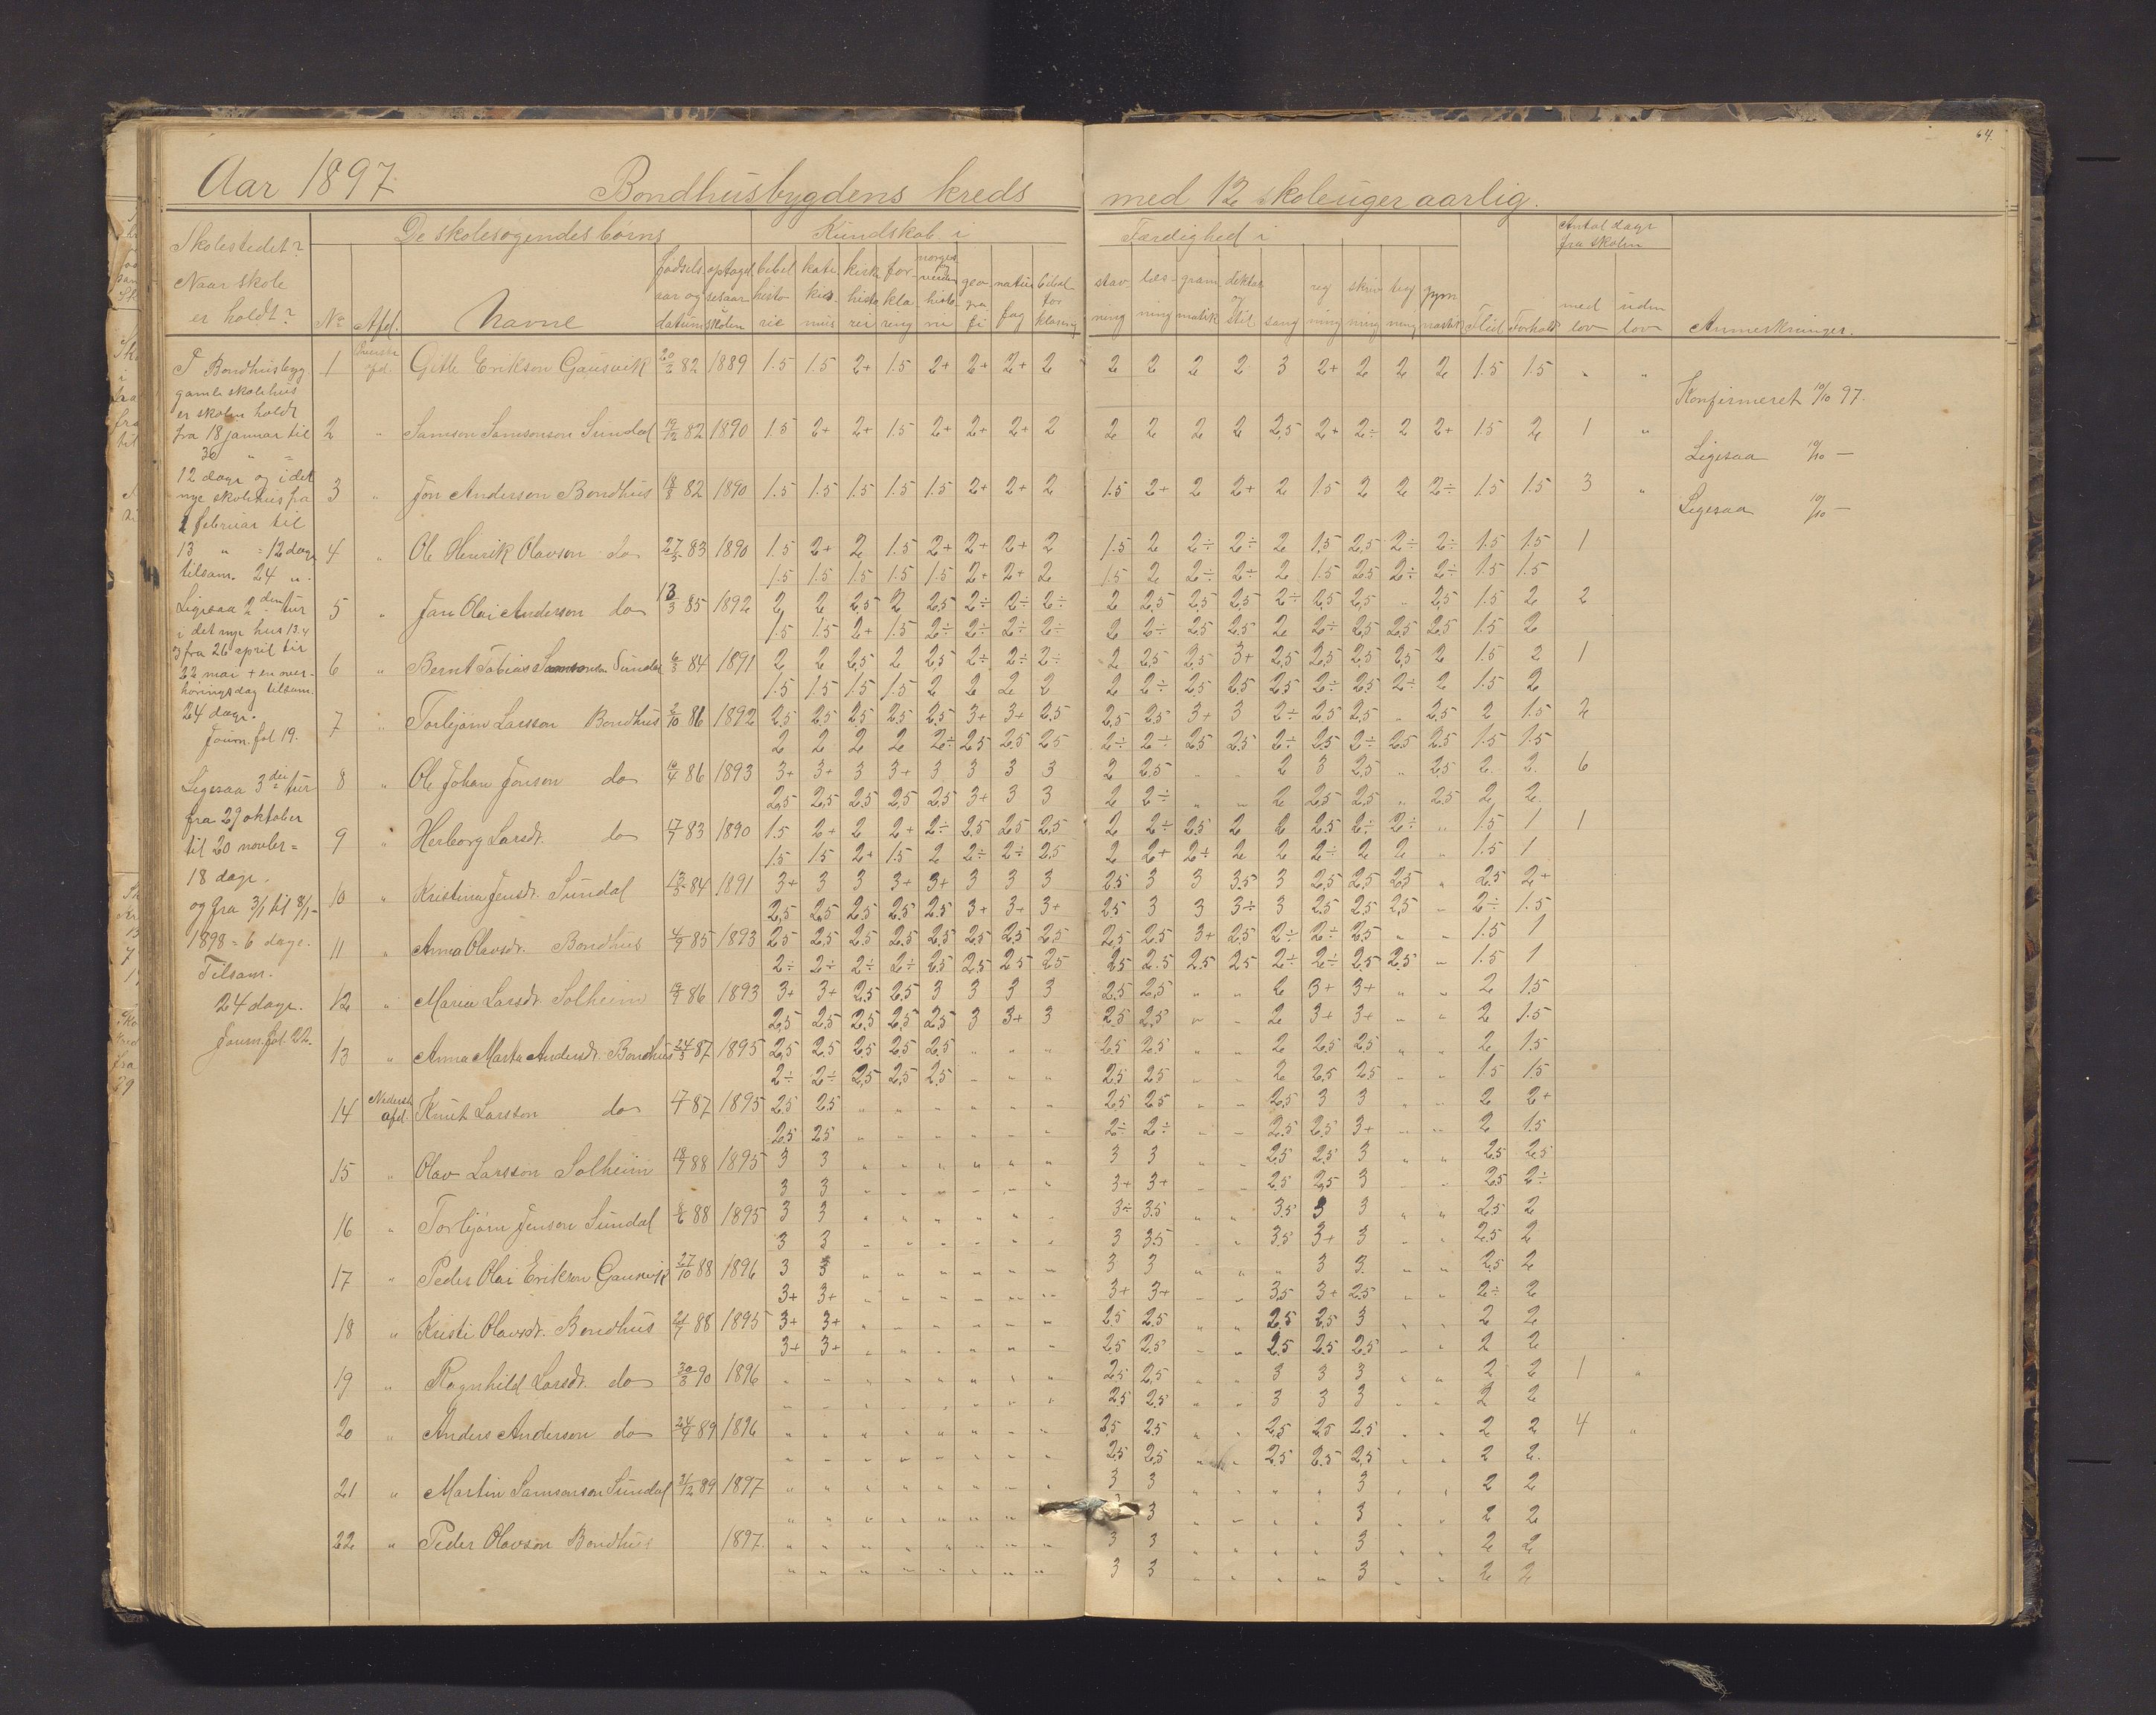 64.
Aar 1897. Bondhusbygdens kreds med 12 skoleuger aarlig.
Skolestedet?
Naar skole
er holdt?
De skolesøgendes børns
Kundskab i
Færdighed i
Antal dage
fra skolen
No Afd. Navne
fødsels aar og datum
optagelsesaar skolen
bibel historie
kirke historie
forklaring
geografi
natur fag
bibel forklaring
stavning
læsning
gramatik
diktat og stil
sang
regning
skrivning
tegning
gymnastik
Flid
Forhold
med lov
uden lov
Anmerkninger.
I Bondhusbyg
gamle skolehus
er skolen holdt
fra 18 januar til
30 " =
12 dage og i det
nye skolehus fra
1 februar til
13 " = 12 dage
tilsam. 24 "
Ligesaa 2den tur
i det nye hus
fra 26 april til
22 mai + en over-
høringsdag tilsam.
24 dage.
Journ. fol 19.
Ligesaa 3die tur
fra 29 oktober
til 20 novber =
18 dage.
og fra 3/1 til 8/1
1898 = 6 dage.
Tilsam.
24 dage.
Journ. fol. 22.
1 Gitle Erikson Gausvik 82 1889 1.5 1.5 2+ 1.5 2+ 2+ 2+ 2 2 2 2 2 3 2+ 2 2 2 1.5 1.5 " "
Konfirmeret 10/10 97.
2 " Samson Samsonson Sundal 19/12 82 1890 1.5 2+ 2+ 1.5 2+ 2+ 2+ 2 2 2 2 2 2,5 2+ 2÷ 2 2+ 1.5 2 1 "
Ligesaa 10/10 —
3 " Jon Anderson Bondhus 18/8 82 1890 1.5 1.5 1.5 1.5 1.5 2+ 2+ 2 1.5 2+ 2 2+ 2 1.5 2 2 2÷ 1.5 1.5 3 "
Ligesaa 10/10 —
4 " Ole Henrik Olavson do 27/3 83 1890 1.5 2+ 2 1.5 2+ 2+ 2+ 2 1.5 2 2÷ 2÷ 2 1.5 2,5 2÷ 2÷ 1.5 1.5 1
1.5 1.5 1.5 1.5 1.5 2+ 2+ 2 1.5 2 2÷ 2÷ 2 1.5 2.5 2÷ 2÷ 1.5 1.5
5 " Jan Olai Anderson do 13/3 85 1892 2 2 2.5 2 2.5 2÷ 2÷ 2÷ 2 2.5 2.5 2.5 2÷ 2.5 2.5 " 2.5 1.5 2 2
1.5 1.5 2+ 1.5 2÷ 2÷ 2÷ 2÷ 2 2÷ 2.5 2.5 2 2÷ 2.5 2.5 2.5 1.5 2
6 " Bernt Tobias Samsonson Sundal 6/3 84 1891 2 2 2.5 2 2.5 2÷ 2÷ 2÷ 2 2.5 2.5 3+ 2.5 2.5 2.5 2.5 2 1.5 2 1
1.5 1.5 1.5 1.5 2 2 2 2 2 2÷ 2.5 2.5 2.5 2÷ 2.5 2÷ 2 1.5 2
7 " Torbjørn Larsson Bondhus 2/10 86 1892 2.5 2.5 2.5 2.5 2.5 3+ 3+ 2.5 2.5 2.5 3+ 3 2÷ 2.5 2.5 " 2.5 2 1.5 2
2 2 2 2 2÷ 2.5 2.5 2.5 2÷ 2÷ 2.5 2.5 2÷ 2.5 2÷ 2.5 2.5 1.5 1.5
8 " Ole Johan Jonson do 86 1893 3+ 3+ 3 3+ 3 3 3 3 2 2.5 " " 2 3 2.5 " 2.5 2 2 6
2.5 2.5 2.5 2.5 2.5 3+ 3 3 2 2÷ " " 2 2.5 2.5 " 2.5 2 2
9 " Herborg Larsdt. do 17/7 83 1890 1.5 2+ 2 2+ 2÷ 2.5 2.5 2.5 2 2÷ 2.5 2 2 2.5 2÷ 2÷ " 1.5 1 1
1.5 1.5 2+ 1.5 2 2÷ 2÷ 2.5 2 2+ 2÷ 2 2 2÷ 2 2 " 1.5 1
10 " Kristina Jensdt. Sundal 13/3 84 1891 3+ 3 3 3+ 3+ 3 3 3 2.5 3 3 3.5 3 2.5 2.5 2.5 " 2.5 2+
2.5 2.5 2.5 2.5 2.5 3+ 3+ 3+ 2.5 3 3 3÷ 3 2.5 2.5 2.5 " 2÷ 1.5
11 " Anna Olavsdt. Bondhus 4/9 85 1893 2.5 2.5 2.5 2.5 2.5 2.5 2.5 2.5 2.5 2.5 3+ 2.5 2÷ 2÷ 2.5 " " 1.5 1
2÷ 2÷ 2÷ 2÷ 2.5 2.5 2.5 2.5 2.5 2.5 2.5 2.5 2÷ 2÷ 2.5 2.5 " 1.5 1
12 " Maria Larsdt. Solheim 86 1893 3+ 3+ 2.5 2.5 3 3 3 3 2.5 2.5 " " 2 3+ 3+ " " 2 1.5
2.5 2.5 2.5 2.5 2.5 3 3+ 3 2.5 2.5 " " 2 3+ 3+ " " 2 1.5
13 " Anna Marta Andersdt. Bondhus 24/3 87 1895 2.5 2.5 2.5 2.5 2.5 " " " 2.5 2.5 " " 2 2.5 2.5 " " 2 1.5
2÷ 2÷ 2.5 2.5 2.5 " " " 2.5 2.5 " " 2 2.5 2.5 " " 1.5 1.5
14 Nederste afd. Knut Larsson do 87 1895 2.5 2.5 " " " " " " 2.5 2.5 " " 2.5 3 3 " " 2 2+
2.5 2.5 " " " " " " 2÷ 2÷ " " 2.5 2.5 3+ " " 2 1.5
15 " Olav Larsson Solheim 18/7 88 1895 3 3 " " " " " " 3 3 " " 2.5 2.5 3 " " 2.5 2.5
3 3 " " " " " " 3+ 3+ " " 2.5 2.5 3 " " 2.5 2÷
16 " Torbjørn Jenson Sundal 88 1895 3 3 " " " " " " 3÷ 3.5 " " 3.5 3 3 " " 2.5 2
3 3 " " " " " " 3 3.5 " " 3.5 3+ 3 " " 2.5 2
17 " Peder Olai Erikson Gausvik 27/10 88 1896 3 3 " " " " " " 3 3 " " " 3 3 " " 2.5 2
3+ 3+ " " " " " " 3+ 3+ " " 3.5 3+ 2.5 " " 2÷ 2
18 " Kristi Olavsdt. Bondhus 21/7 88 1895 3+ 3+ " " " " " " 2.5 2.5 " " 2.5 2.5 3 " " 2 2
3+ 3+ " " " " " " 2.5 2.5 " " 2.5 2.5 2.5 " " 2 2
19 " Ragnhild Larsdt. do 30/3 90 1896 " " " " " " " " 2.5 2.5 " " 3 3 3 " " 2 2 1 "
" " " " " " " " 2.5 2.5 " " 3 3 3 " " 2 2
20 " Anders Anderson do 24/9 89 1896 " " " " " " " " 2.5 2.5 " " 2.5 2.5 2.5 " " 2 2 4 "
" " " " " " " " 2.5 2.5 " " 2.5 2.5 2.5 " " 2 2
21 " Martin Samsonson Sundal 31/12 89 1897 " " " " " " " " 3 3 " " " " 3 " " 2 2
" " " " " " " " 3 " " " " 3 " " 2 2
22 " Peder Olavson Bondhus 1897. " " " " " " " " 3 3 " " " " 3 " " 2 2
" " " " " " " " 3 3 " " " " 3 " " 2 2